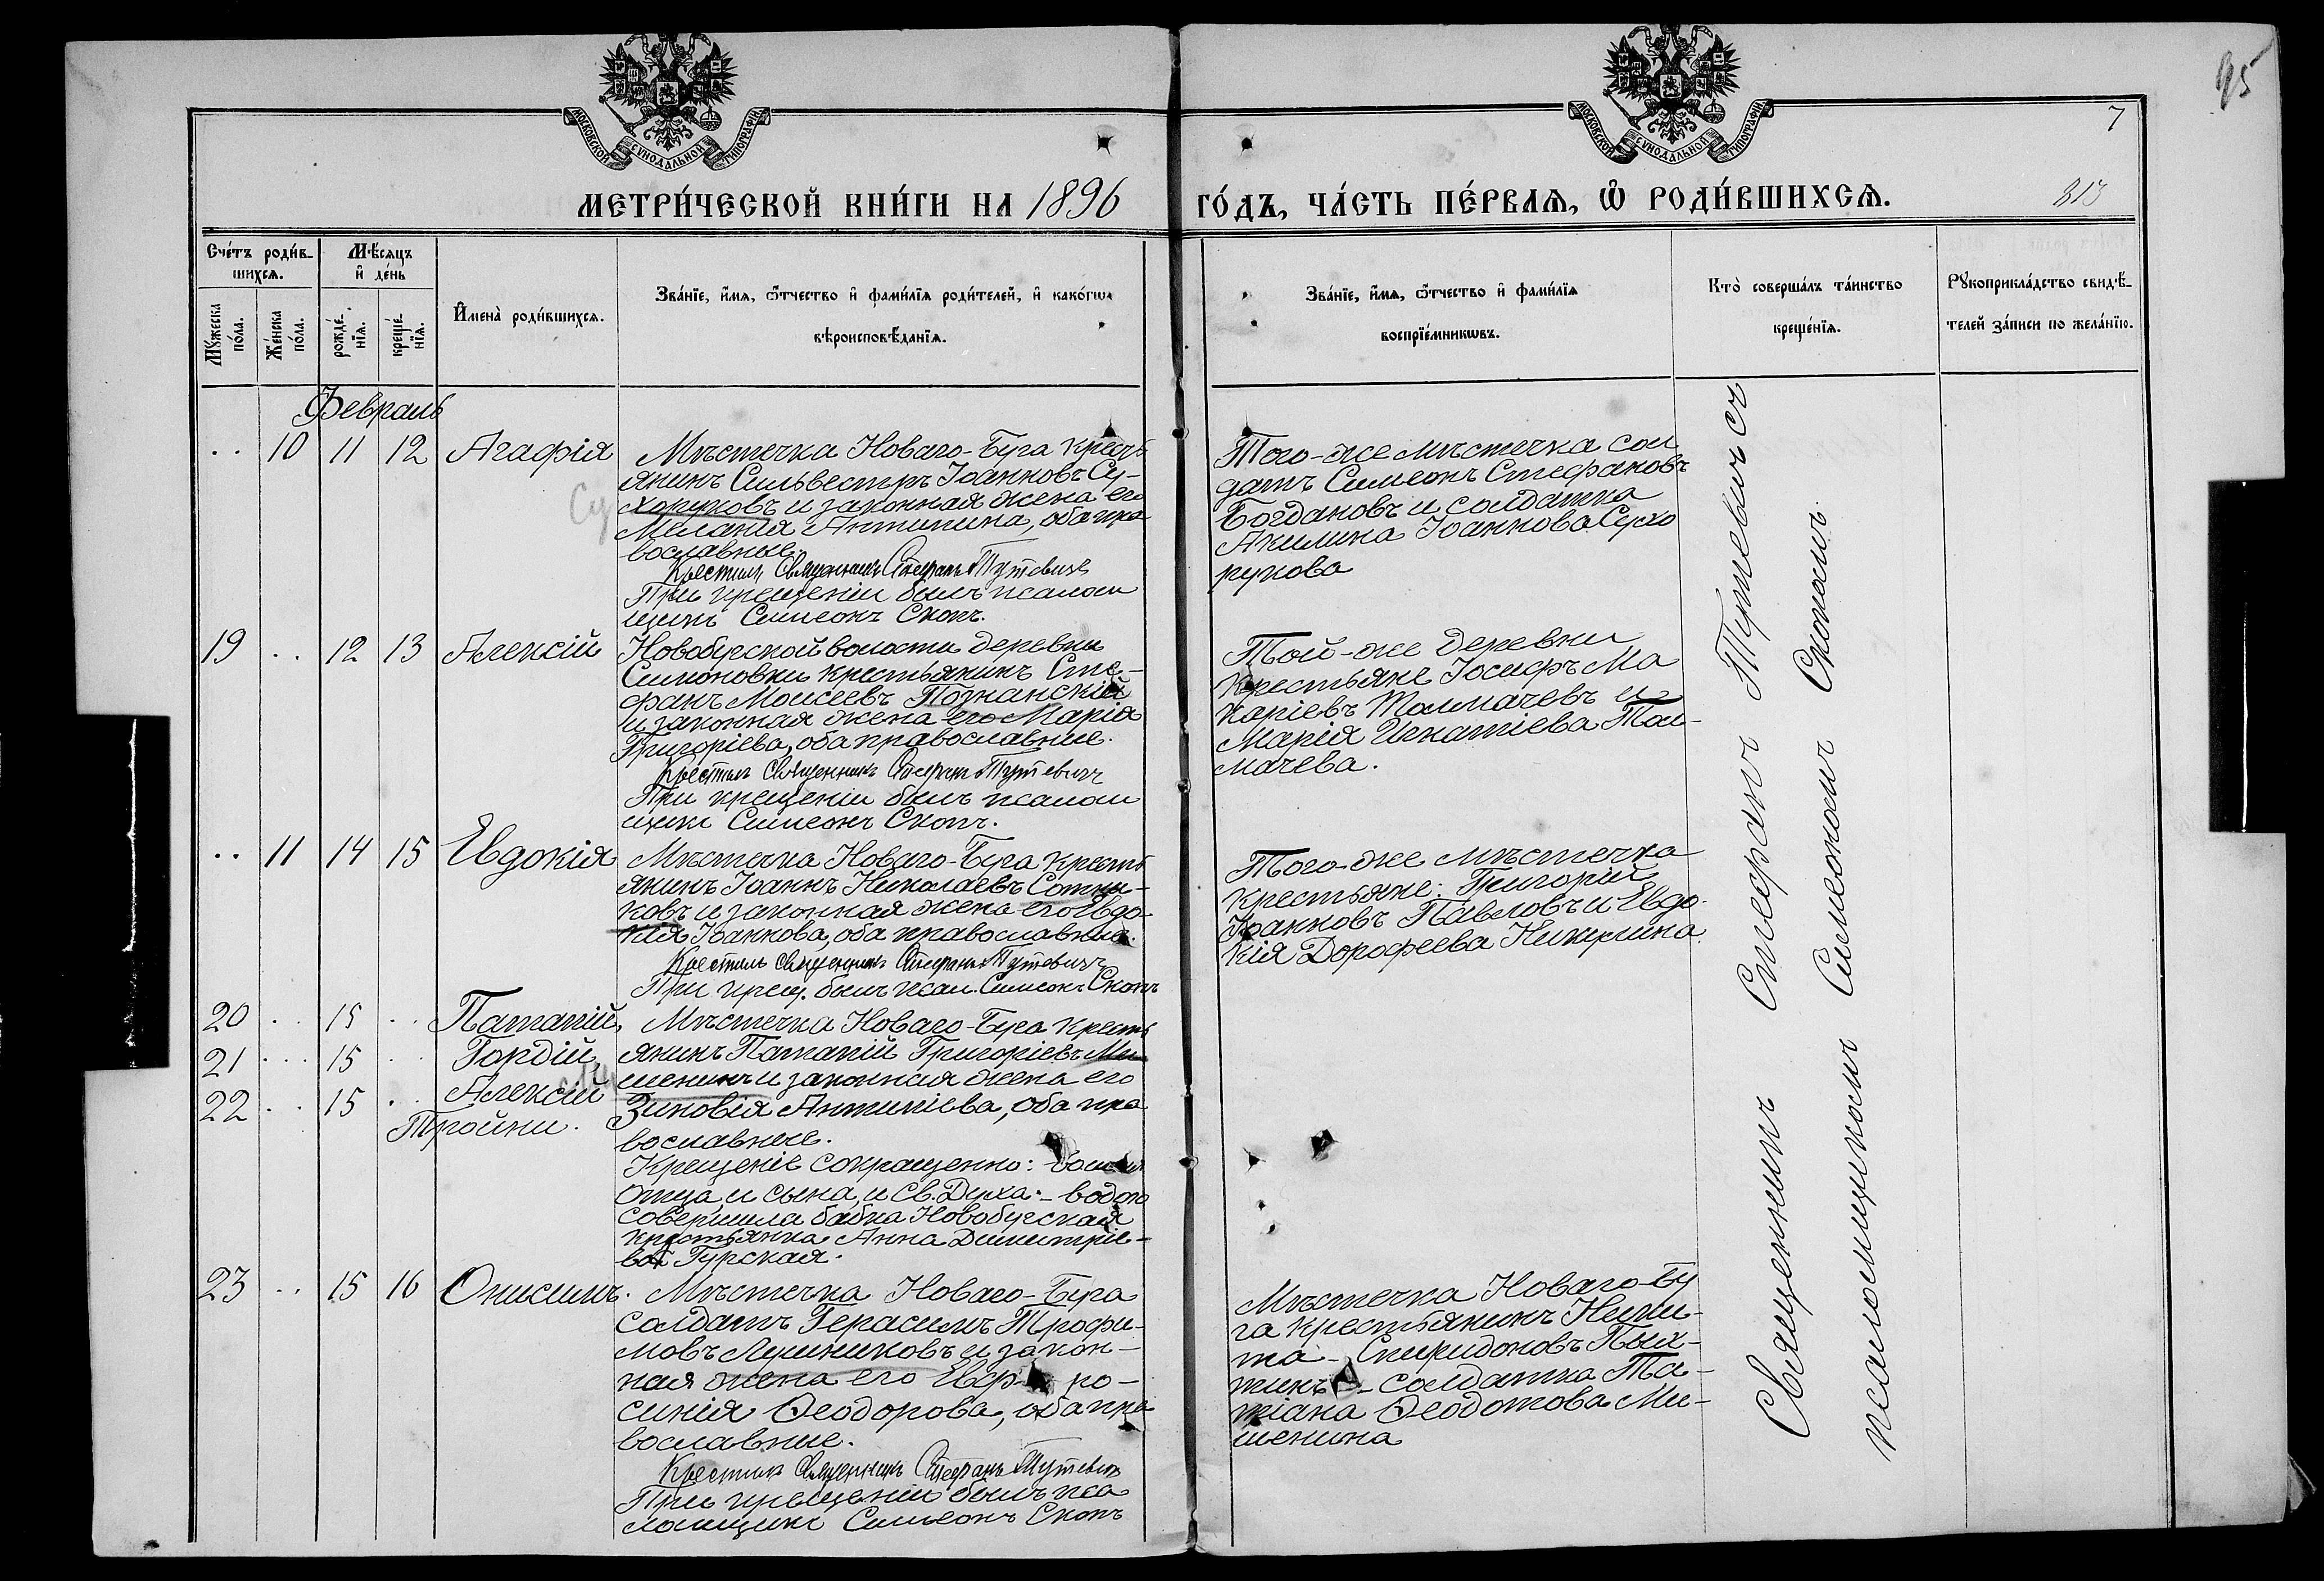 95
7
МОСКОВСКОЙ СУНОДАЛЬНОЙ ТИПОГРАФІИ
МОСКОВСКОЙ СУНОДАЛЬНОЙ ТИПОГРАФІИ
МЕТРИ́ЧЕСКОЙ КНИ́ГИ НА 1896 ГО́ДЪ, ЧА́СТЬ ПЕ́РВАѦ, Ѿ РОДИ́ВШИХСѦ.
313
Сче́тъ роди́в-
шихсѧ.
Мѣ́сѧцъ
и҆ де́нь
Мꙋ́жеска по́ла.
Же́нска по́ла.
рожде́-нїѧ.
креще́-нїѧ.
И҆мена̀ роди́вшихсѧ.
Зва́нїе, и҆́мѧ, ѻ҆́тчество и҆ фами́лїѧ роди́телей, и҆ како́гѡ
вѣроисповѣ́данїѧ.
Зва́нїе, и҆́мѧ, ѻ҆́тчество и҆ фами́лїѧ
воспрїе́мникѡвъ.
Кто̀ соверша́лъ та́инство
креще́нїѧ.
Рꙋкоприкла́дство свидѣ́-
телей за́писи по жела́нїю.
Февраль
.. 10 11 12 Агафія
Мѣстечка Новаго-Буга кресть
янинъ Сильвестръ Іоанновъ Су-
хоруковъ и законная жена его
Мелания Антипина, оба пра
вославные.
Крестилъ Священникъ Стефанъ Тутевичъ
При крещеніи былъ псалом
щикъ Симеонъ Скопъ.
Того-же мѣстечка сол
датъ Симеонъ Стефановъ
Богдановъ и солдатка
Акилина Іоаннова Сухо
рукова
19 .. 12 13 Алексій
Новобугской волости деревни
Симоновки крестьянинъ Сте-
фанъ Моисеевъ Познанскій
и законная жена его Марія
Григоріева, оба православные.
Крестилъ Священникъ Стефанъ Тутевичъ
При крещеніи былъ псалом
щикъ Симеонъ Скопъ.
Той-же деревни
Крестьяне Іосифъ Ма
каріевъ Толмачевъ и
Марія Игнатіева Тол-
мачева.
.. 11 14 15 Евдокія
Мѣстечка Новаго-Буга кресть
янинъ Іоаннъ Николаевъ Сотни-
ковъ и законная жена его Евдо-
кія Іоаннова, оба православные.
Крестилъ Священникъ Стефанъ Тутевичъ
При крещ. былъ псал. Симеонъ Скопъ
Того-же мѣстечка
Крестьяне: Григорій
Іоанновъ Павловъ и Евдо-
кія Дорофеева
20 .. 15 .. Патапій,
21 .. 15 .. Гордій,
22 .. 15 .. Алексій
Тройни.
Мѣстечка Новаго-Буга кресть
янинъ Патапій Григоріевъ Ми
шенинъ и законная жена его
Зиновія Антипіева, оба пра
вославные.
Крещеніе сокращенно: во имя
Отца, и сына, и Св. Духа - водою
совершила бабка Новобугская
крестьянка Анна Димитріе-
ва Гурская.
23 .. 15 16 Онисимъ.
Мѣстечка Новаго-Буга
солдатъ Герасимъ Трофи-
мовъ Лушниковъ и закон-
ная жена его Евф-ро-
синія Ѳеодорова, оба пра
вославные.
Крестилъ Священникъ Стефанъ Тутевичъ
При крещеніи былъ пса
ломщикъ Симеонъ Скопъ
Мѣстечка Новаго-Бу
га крестьянинъ Ники-
та Спиридоновъ
солдатка Та-
тіана Ѳеодотова Ми-
шенина
Священникъ Стефанъ Тутевичъ съ
псаломщикомъ Симеономъ Скопомъ.